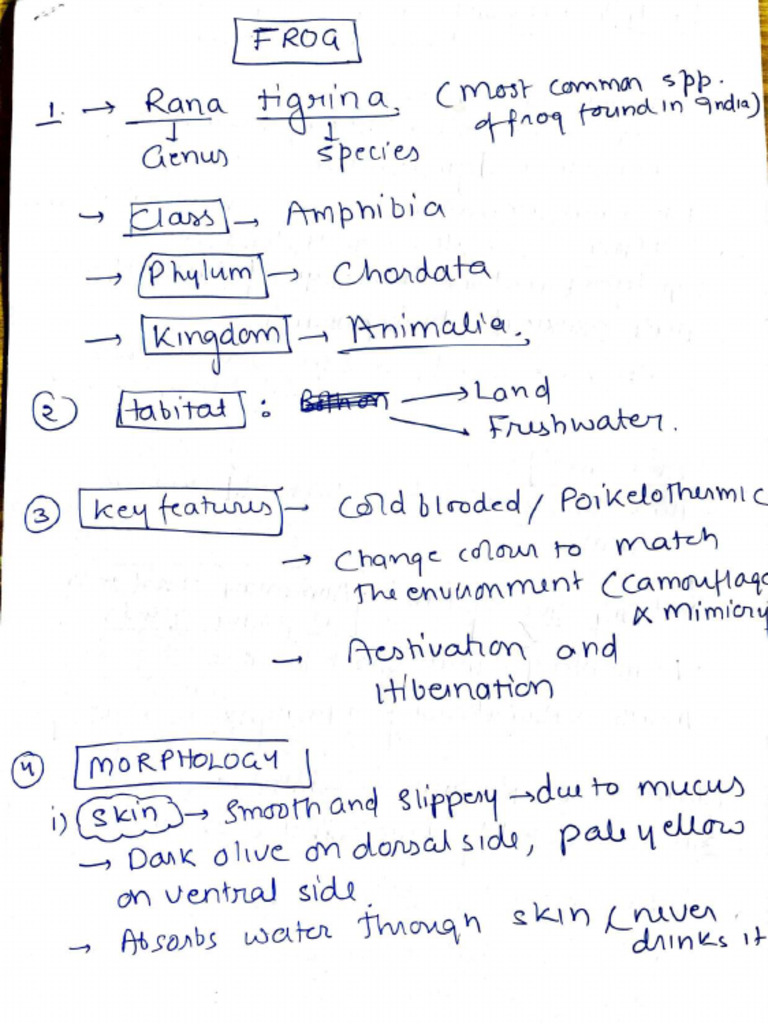 FROG
1. → Rana tigrina. (Most common spp.
of frog found in India)
↓ ↓
Genus species
→ Class → Amphibia
→ Phylum → Chordata
→ Kingdom → Animalia.
② Habitat : → Land
→ Freshwater.
③ Key features → Cold blooded / Poikelothermic
→ Change colour to match
the environment (camouflage
& mimicry
→ Aestivation and
Hibernation
④ MORPHOLOGY
i) Skin → Smooth and slippery → due to mucus
→ Dark olive on dorsal side, pale yellow
on ventral side.
→ Absorbs water through skin (never
drinks it